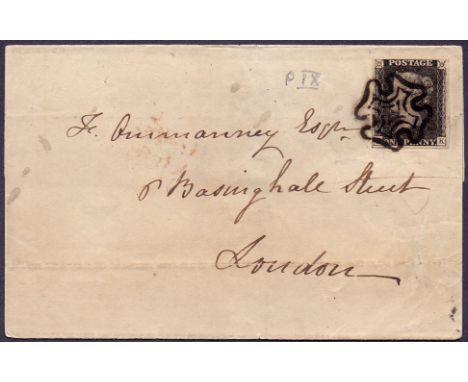 P IX
POSTAGE
ONE PENNY K
F. Ommanney Esqre
8 Basinghall Street
London